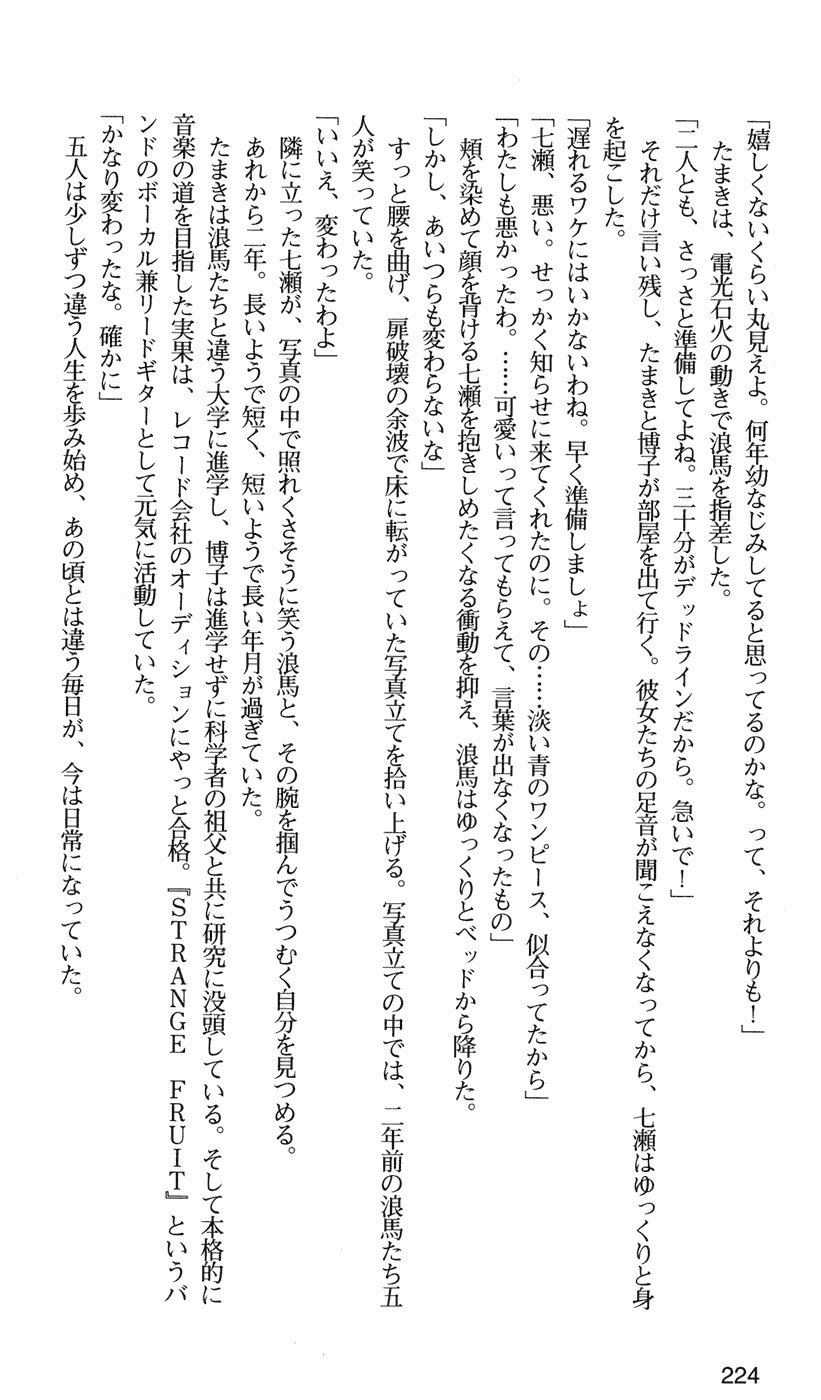 「嬉しくないくらい丸見えよ。何年幼なじみしてると思ってるのかな。って、それよりも！」
たまきは、電光石火の動きで浪馬を指差した。
「二人とも、さっさと準備してよね。三十分がデッドラインだから。急いで！」
それだけ言い残し、たまきと博子が部屋を出て行く。彼女たちの足音が聞こえなくなってから、七瀬はゆっくりと身
を起こした。
「遅れるワケにはいかないわね。早く準備しましょ」
「七瀬、悪い。せっかく知らせに来てくれたのに。その……淡い青のワンピース、似合ってたから」
「わたしも悪かったわ。……可愛いって言ってもらえて、言葉が出なくなったもの」
頬を染めて顔を背ける七瀬を抱きしめたくなる衝動を抑え、浪馬はゆっくりとベッドから降りた。
「しかし、あいつらも変わらないな」
すっと腰を曲げ、扉破壊の余波で床に転がっていた写真立てを拾い上げる。写真立ての中では、二年前の浪馬たち五
人が笑っていた。
「いいえ、変わったわよ」
隣に立った七瀬が、写真の中で照れくさそうに笑う浪馬と、その腕を掴んでうつむく自分を見つめる。
あれから二年。長いようで短く、短いようで長い年月が過ぎていた。
たまきは浪馬たちと違う大学に進学し、博子は進学せずに科学者の祖父と共に研究に没頭している。そして本格的に
音楽の道を目指した実果は、レコード会社のオーディションにやっと合格。『ＳＴＲＡＮＧＥ　ＦＲＵＩＴ』というバ
ンドのボーカル兼リードギターとして元気に活動していた。
「かなり変わったな。確かに」
五人は少しずつ違う人生を歩み始め、あの頃とは違う毎日が、今は日常になっていた。
224